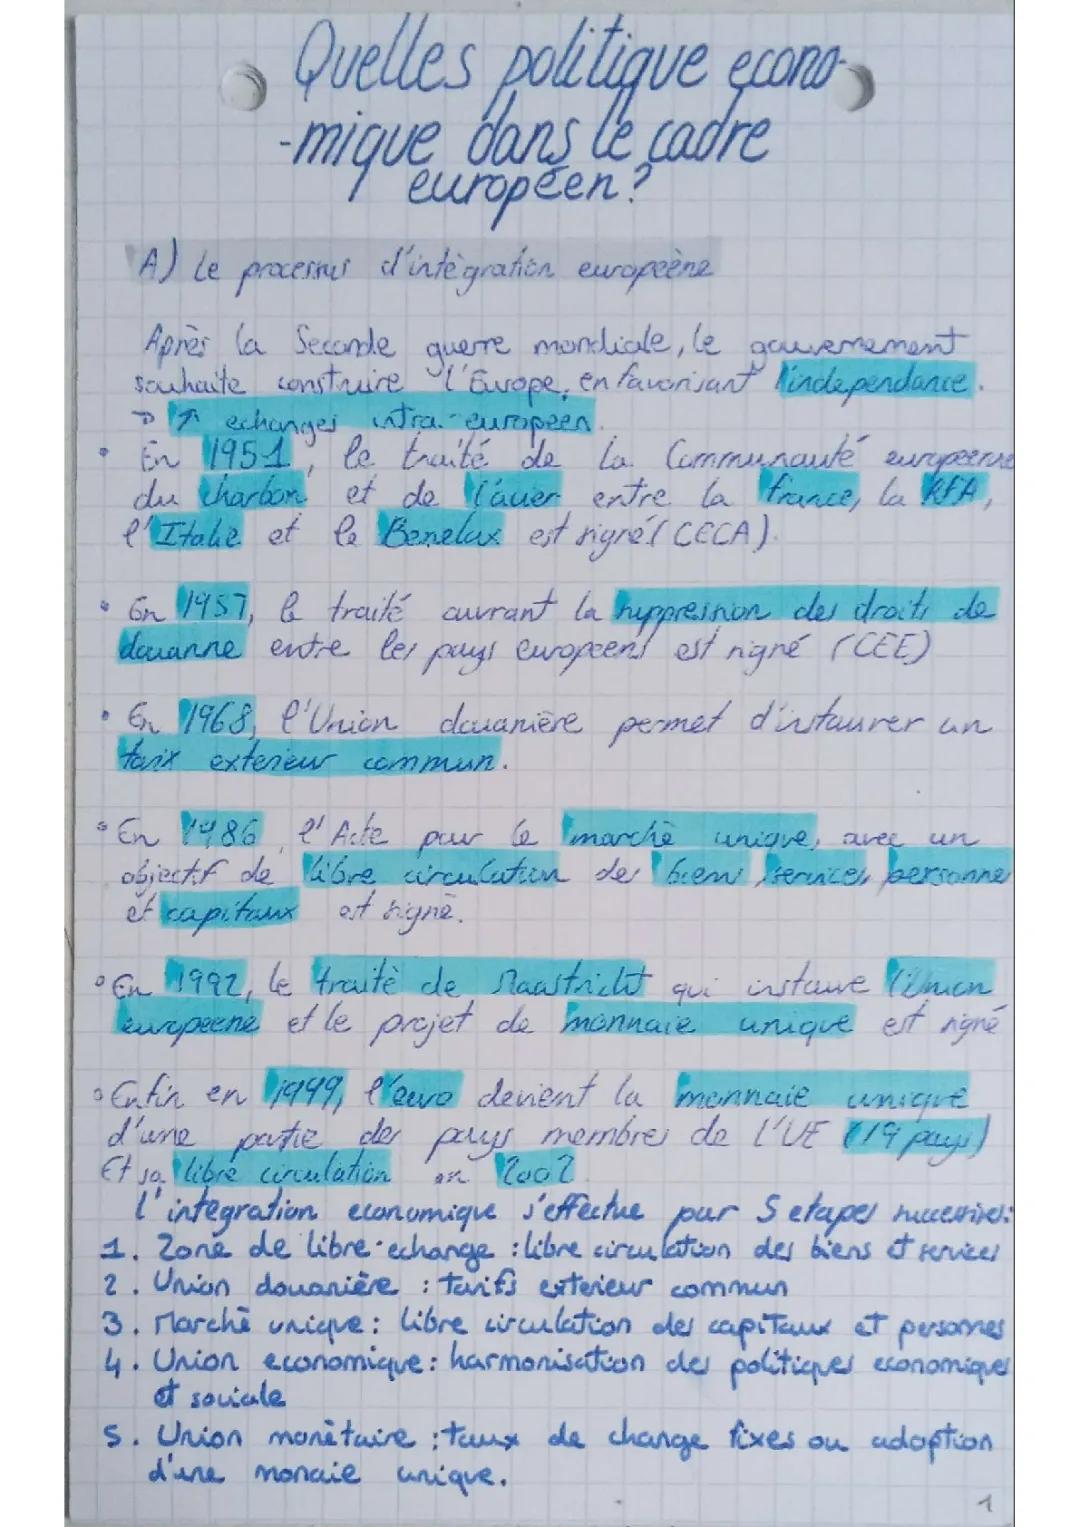 Quelles politique econo-
-mique dans le cadre
européen?
A) Le processus d'intégration européène
Après la Seconde guerre mondiale, le gouvernement
souhaite construire l'Europe, en favorisant l'indépendance.
→ ↑ echanges intra-européen.
• En 1951, le traité de la Communauté européenne
du charbon et de l'acier entre la france, la RFA,
l'Italie et le Benelux est signé (CECA).
• En 1957, le traité ouvrant la suppression des droits de
douanne entre les pays européens est signé (CEE)
• En 1968, l'Union douanière permet d'instaurer un
tarix exterieur commun.
• En 1986, l'Acte pour le marché unique, avec un
objectif de libre circulation des biens, services, personnes
et capitaux est signé.
• En 1992, le traité de Maastricht qui instaure l'Union
européene et le projet de monnaie unique est signé
• Enfin en 1999, l'euro devient la monnaie unique
d'une partie des pays membres de l'UE (19 pays)
Et sa libre circulation en 2002
L'intégration economique s'effectue par 5 etapes successives:
1. Zone de libre-echange : libre circulation des biens et services
2. Union douanière : tarifs exterieur commun
3. Marché unique : libre circulation des capitaux et personnes
4. Union economique : harmonisation des politiques economiques
et sociale
5. Union monétaire : taux de change fixes ou adoption
d'une monaie unique.
1